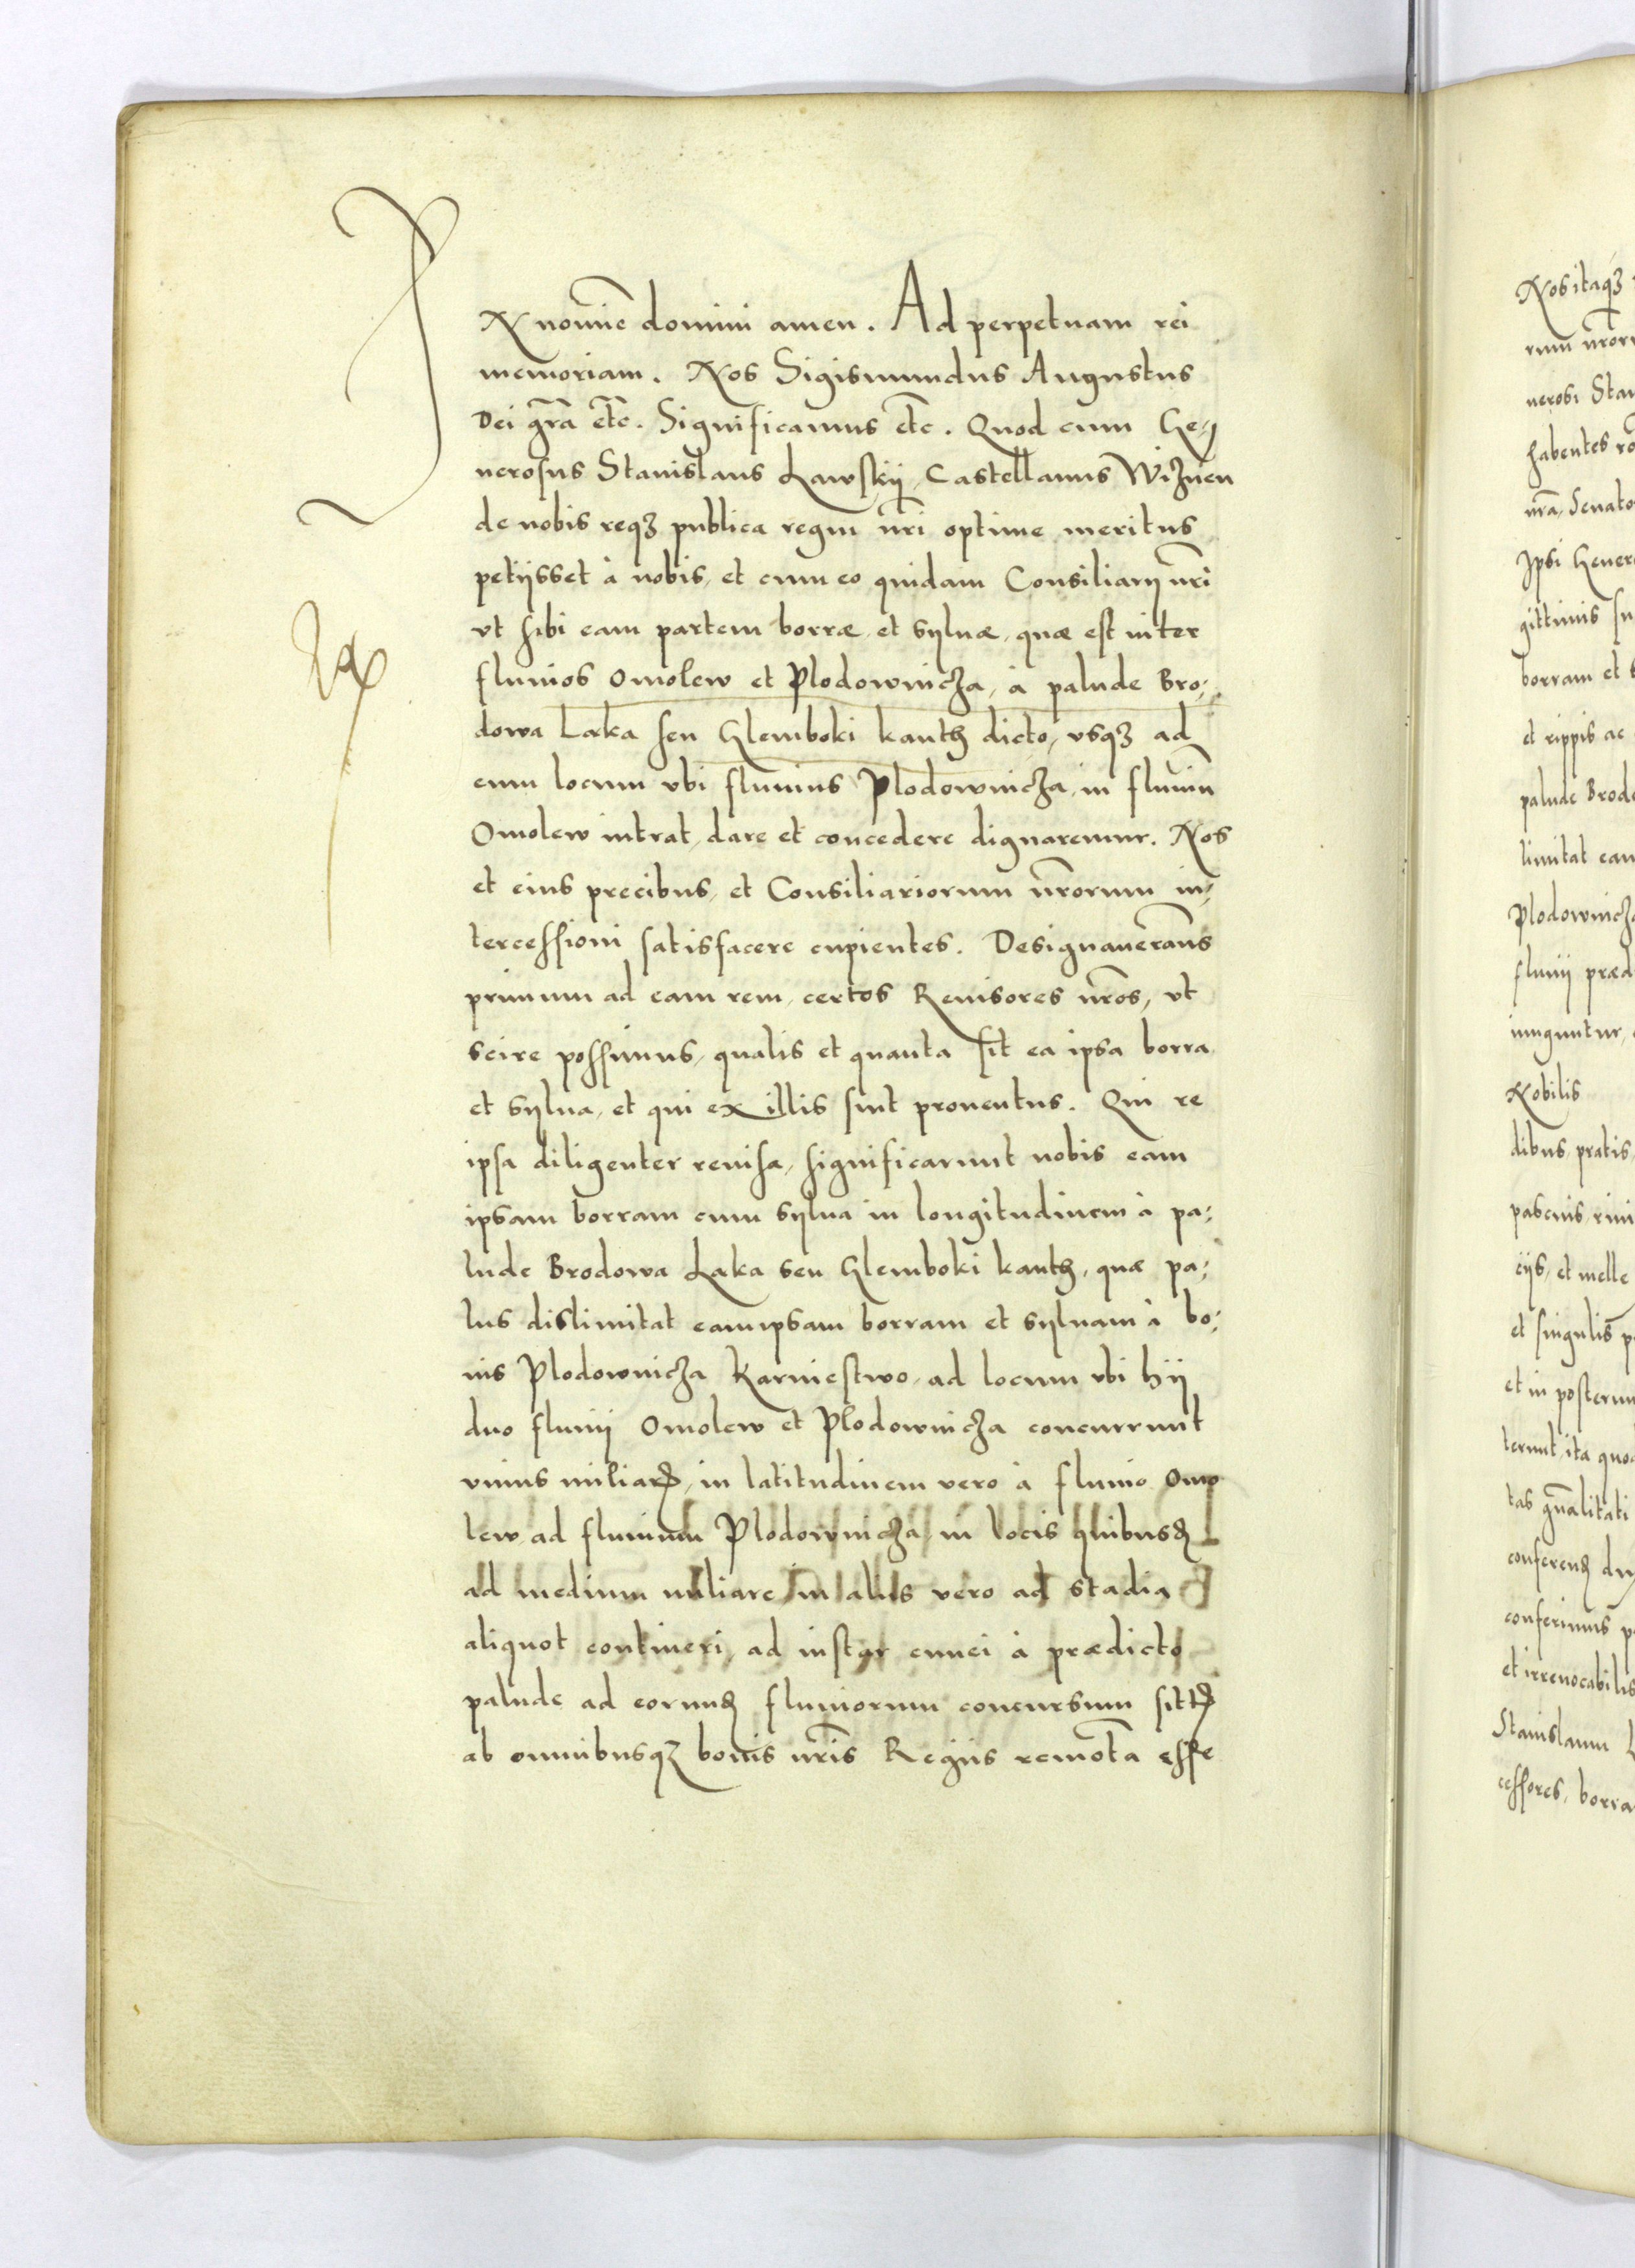 IN nomīe domini amen. Ad perpetuam rei
memoriam. Nos Sigismundus Augustus
Dei gr̄a etc̄. Significamus etc̄. Quod cum Ge⸗
nerosus Stanislaus Lawskij, Castellanus Wiznen
de nobis reqȝ publica regni nr̄i optime meritus
petijsset à nobis, et cum eo quidam Consiliarij nr̄i
vt sibi eam partem borræ et syluæ, quæ est inter
fluuios Omolew et Plodownicza, à palude Bro⸗
dowa Laka seu Glemboki kanth dicto, vsqȝ ad
eum locum vbi fluuius Plodownicza, in fluuiū
Omolew intrat, dare et concedere dignaremur. Nos
et eius precibus, et Consiliariorum nr̄orum in⸗
tercessioni satisfacere cupientes. Designaueram̄s
primum ad eam rem, certos Reuisores nr̄os, vt
scire possimus, qualis et quanta sit ea ipsa borra
et sylua, et qui ex illis sint prouentus. Qui re
ipsa diligenter reuisa, significarunt nobis eam
ipsam borram cum sylua in longitudinem à pa⸗
lude Brodowa Laka seu Glemboki kanth, quæ pa⸗
lus dislimitat eamipsam borram et syluam à bo⸗
nis Plodownicza Karniestwo, ad locum vbi hij
duo fluuij Omolew et Plodownicza concurrunt
vnius miliarꝭ, in latitudinem vero à fluuio Omo
lew, ad fluuium Plodownicza, in locis quibusꝺ
ad medium miliare, in alijs vero ad stadia
aliquot contineri, ad instar cunei à prædicto
palude ad eorunꝺ fluuiorum concursum sittꝭ
ab omnibusqȝ bonis nr̄is Regijs remōta esse
Nos itaqȝ
rum nr̄oru
nerosi Stan
habentes
nr̄a, Senato
Ipsi Genero
gittimis su
borram et s
et rippis ac
palude Brodo
limitat eam
Plodownicza
fluuij præd
iunguntur,
Nobilis
dibus, pratis,
pascuis, riui
cijs, et melle
et singulis p
et in posterum
terunt, ita quod
tas gn̄alitati
conferenꝺ du
conferimus p
et irreuocabilis
Stanislaum L
cessores, borra